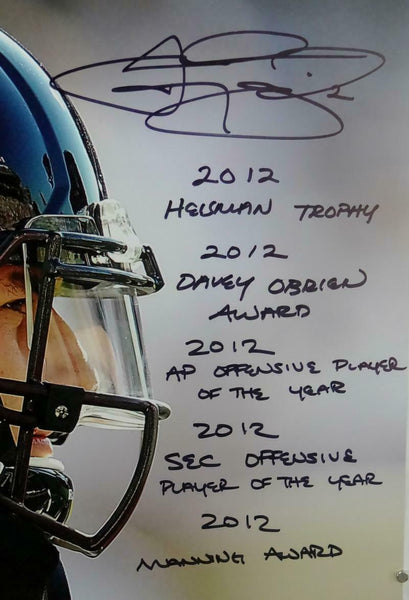 2012
HEISMAN TROPHY
2012
DAVEY OBRIEN
AWARD
2012
AP OFFENSIVE PLAYER
OF THE YEAR
2012
SEC OFFENSIVE
PLAYER OF THE YEAR
2012
MANNING AWARD